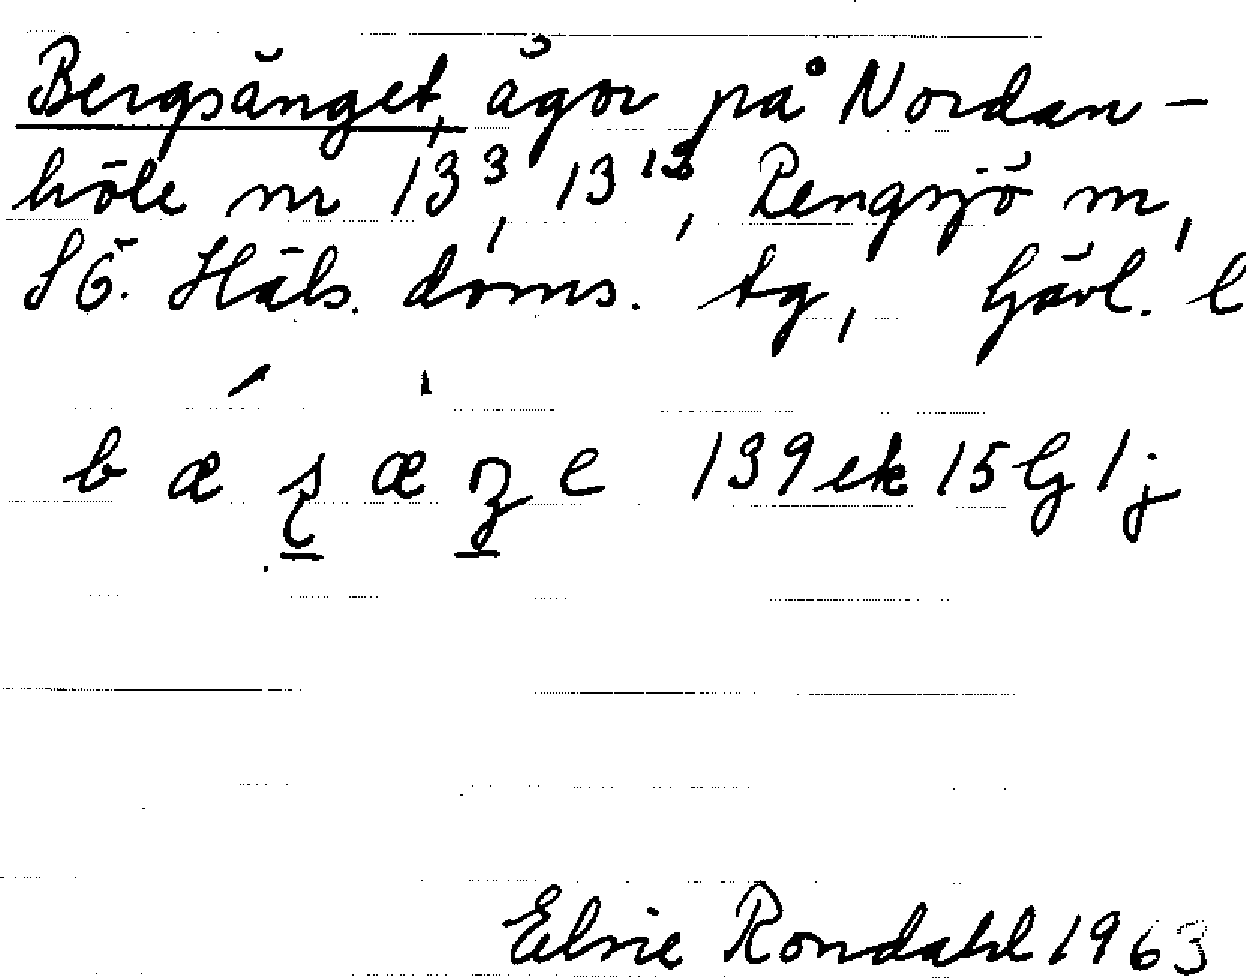 Bergsänget, ägor på Nordan-
höle nr 13³, 13¹³, Rengsjö sn,
SÖ. Häls. doms. tg, Gävl. l
b æ ș æ ʒ e 139 ek 15 G 1 j
Elsie Rondahl 1963